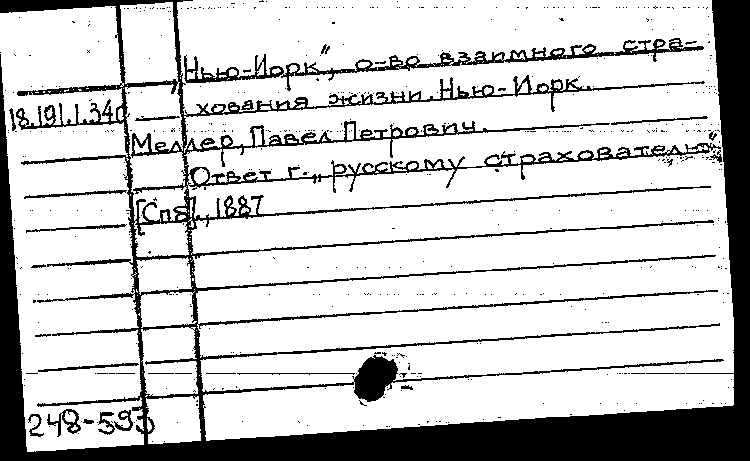 „Нью-Иорк", о-во взаимного стра-
18.191.1.340 хования жизни. Нью-Иорк.
Меллер, Павел Петрович.
Ответ г. „русскому страхователю"
[Спб]., 1887
248-593